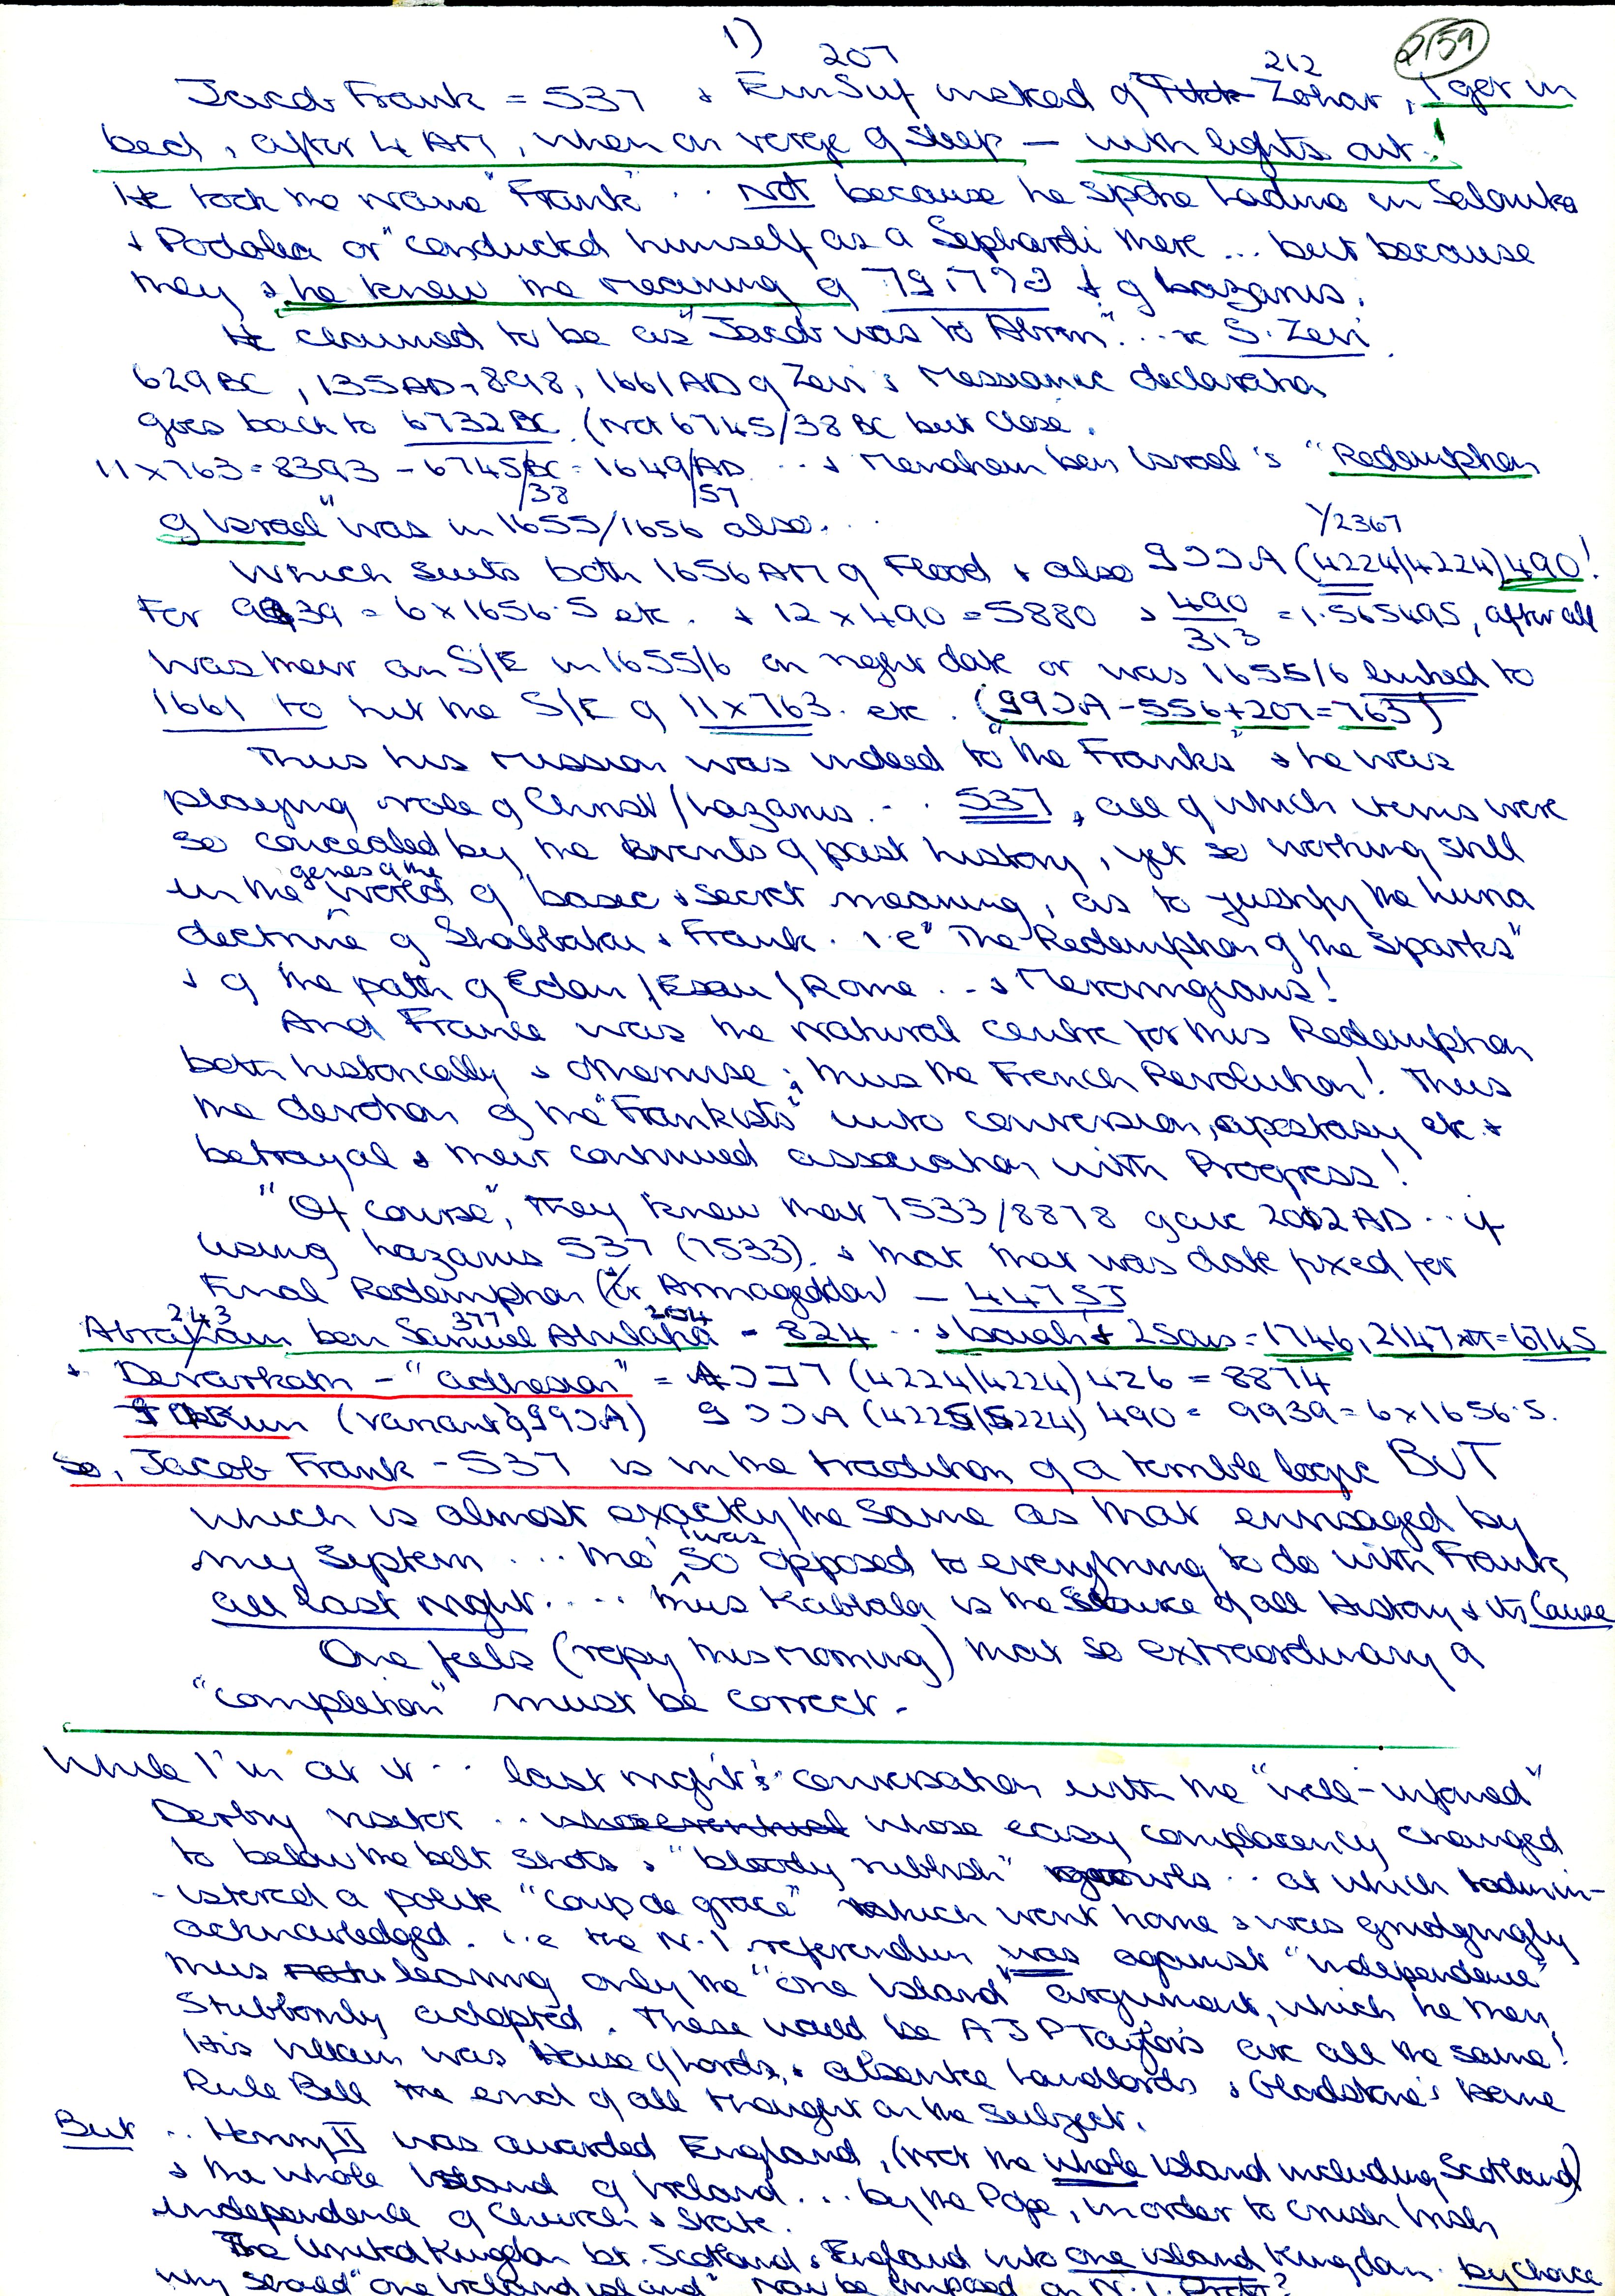 1)
2159
207 212
Jacob Frank = 537 & EinSuf instead of Zohar, I get in
bed, after 4 AM, when on verge of sleep — with lights out!
He took the name "Frank" .. not because he spoke Ladino in Salonika
& Podolia or "conducted himself as a Sephardi there ... but because
they & he knew the meaning of & of Lazarus.
He claimed to be as "Jacob was to Abrm" .. re S. Zevi.
629 BC, 135 AD, 898, 1661 AD of Zevi's Messianic declaration
goes back to 6732 BC (not 6745/38 BC but close.
11 x 763 = 8393 - 6745 BC = 1649/AD ... & Menahem ben Israel's "Redemption
/38 /57
of Israel" was in 1655/1656 also...
Y2367
Which suits both 1656 AM of Flood & also (4224/4224) 490!
For 9939 = 6 x 1656.5 etc. & 12 x 490 = 5880 & 490/313 = 1.565495, after all
was there an S/E in 1655/6 on right date or was 1655/6 linked to
1661 to hit the S/E of 11 x 763. etc. ( - 556 + 207 = 763)
Thus his mission was indeed to "the Franks" & he was
playing role of Christ / Lazarus ... 537, all of which items were
so concealed by the events of past history, yet so working still
genes of the
in the world of basic & secret meaning, as to justify the Luria
doctrine of Shabbatai & Frank. i.e "The Redemption of the Sparks"
& of the path of Edom / Esau / Rome .. & Merovingians!
And France was the natural centre for this Redemption
both historically & otherwise; thus the French Revolution! Thus
the devotion of the "Frankists" unto conversion, apostasy etc &
betrayal & their continued association with Progress!
"Of course", they knew that 7533/8878 gave 2002 AD .. if
using Lazarus 537 (7533) & that that was date fixed for
Final Redemption (or Armageddon) — 4475
243 377 204
Abraham ben Samuel Abulafia = 824 .. & + 25 = 1746, 2147 x π = 6745
& Devarkath - "adhesion" = (4224/4224) 426 = 8874
Tikkun (variant of ) (4225/5224) 490 = 9939 = 6 x 1656.5.
So, Jacob Frank - 537 is in the tradition of a terrible logic BUT
which is almost exactly the same as that envisaged by
was
my system ... tho' so opposed to everything to do with Frank
all last night .... thus Kabbala is the Source of all History & its Cause
One feels (repy this morning) that so extraordinary a
"completion" must be correct.
While I'm at it .. last night's conversation with the "well-informed"
Derby visitor .. whose easy complacency changed
to below the belt shots & "bloody rubbish" growls .. at which I admin-
-istered a polite "coup de grace" which went home & was grudgingly
acknowledged. i.e the N.I referendum was against "independence"
thus leaving only the "one island" argument, which he then
stubbornly adopted. These would be AJP Taylor's are all the same!
His villain was House of Lords, & absentee landlords & Gladstone's Home
Rule Bill the end of all thought on the subject.
But .. Henry II was awarded England, (not the whole island including Scotland)
& the whole island of Ireland ... by the Pope, in order to crush Irish
independence of Church & State.
The United Kingdom bt. Scotland & England into one island Kingdom by choice
why should "one Ireland island" now be imposed on N.I.